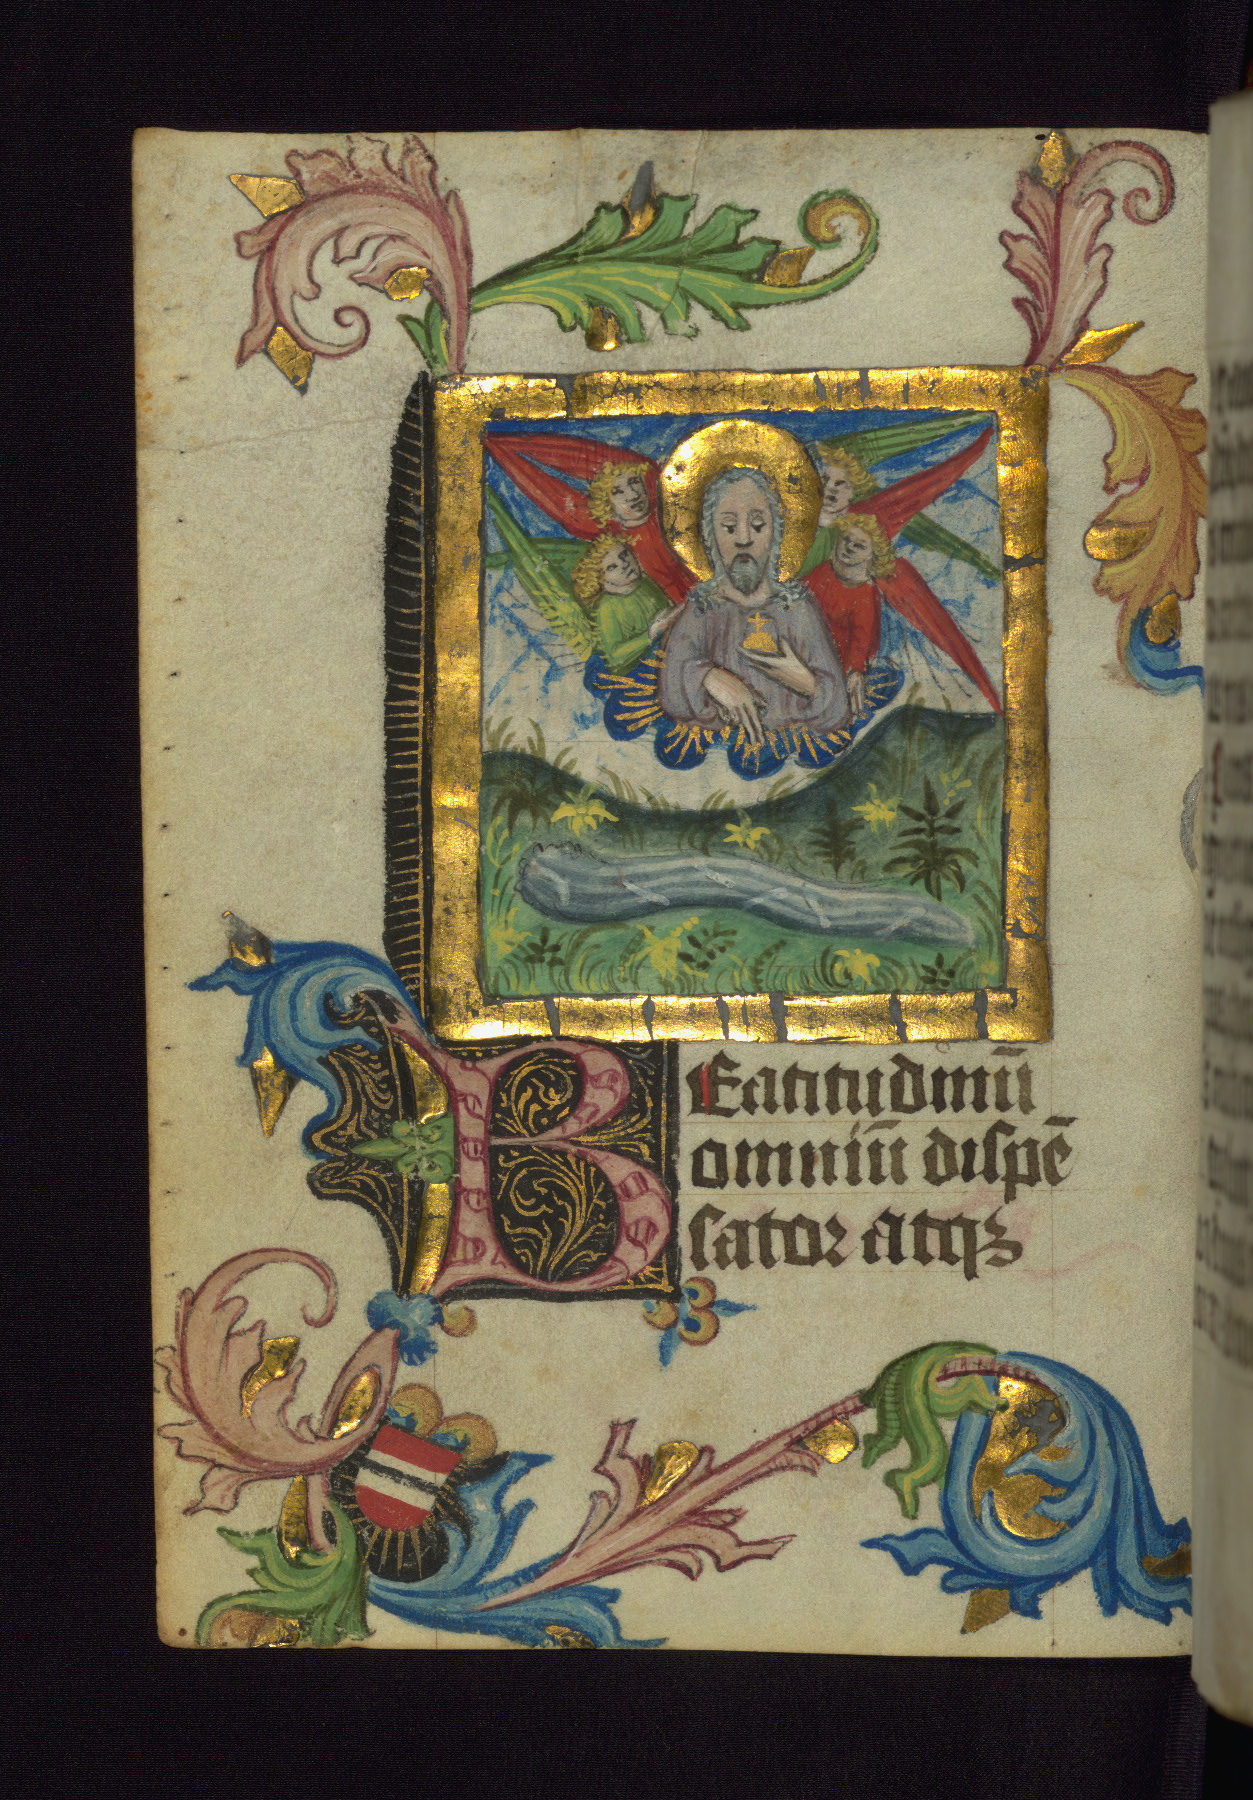 BEatitudinū
omniū dispē
sator atqꝫ